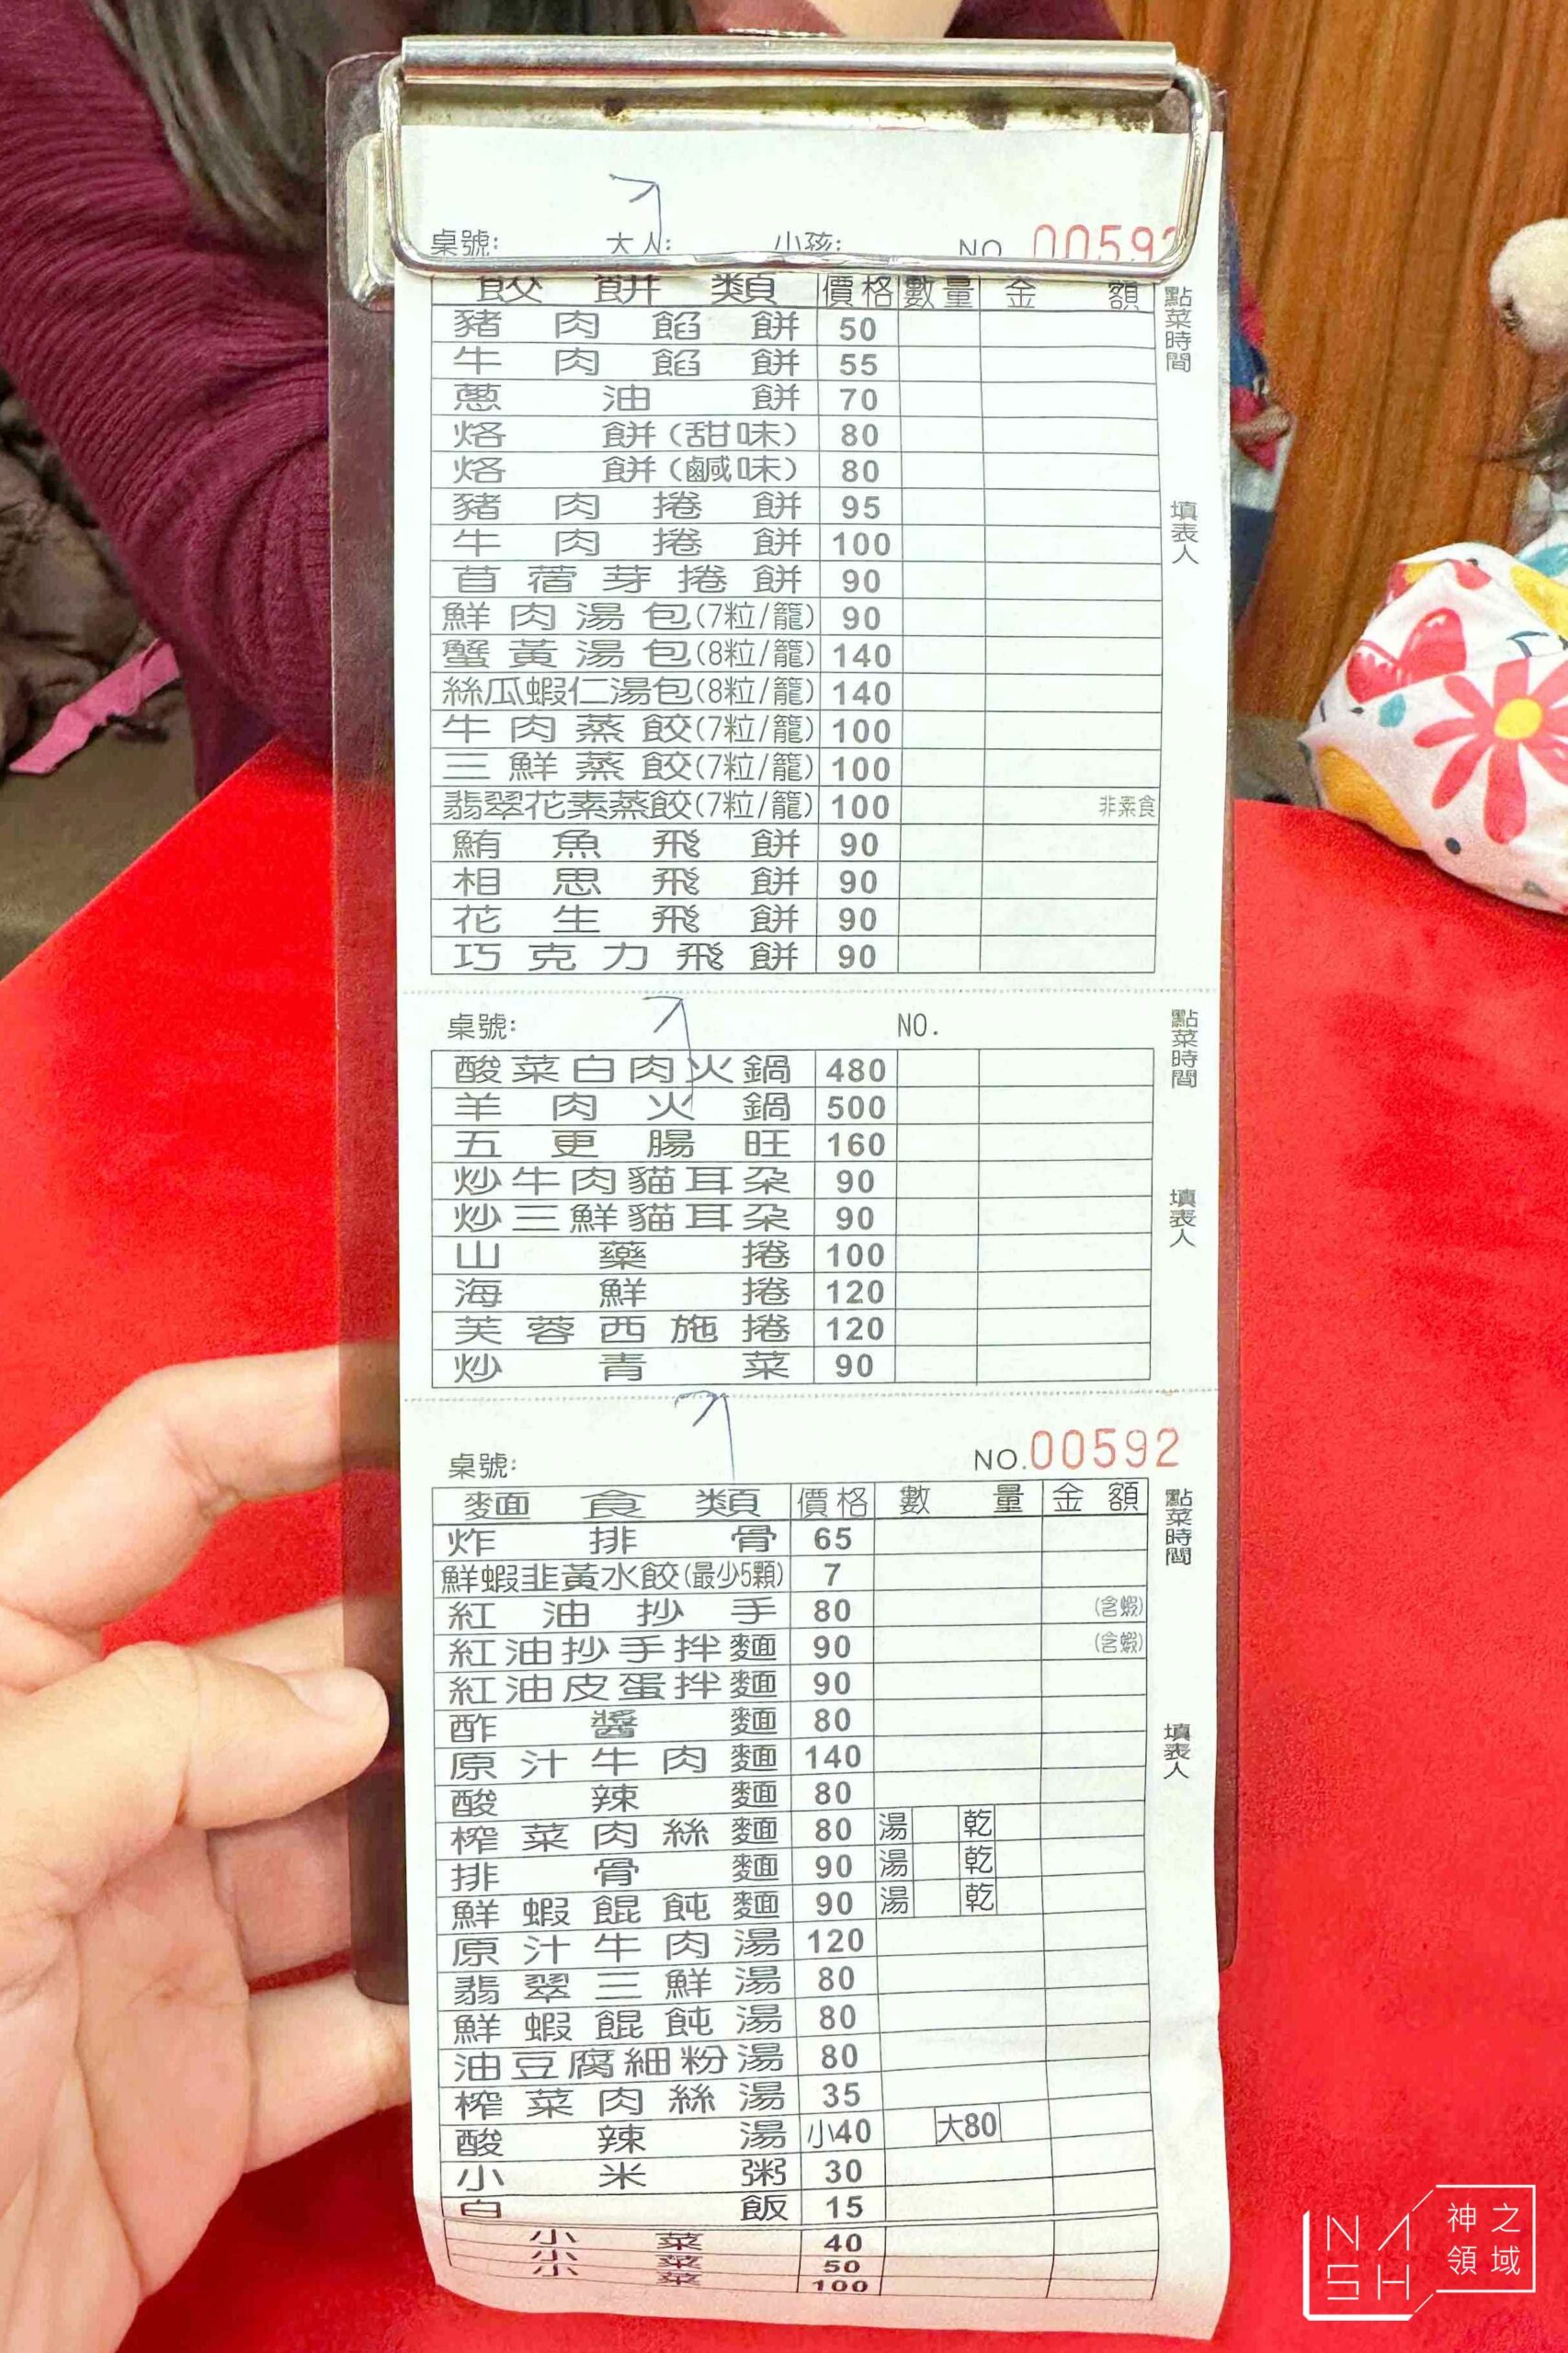 桌號: 大人: 小孩: NO. 00592
餃餅類 價格 數量 金額
點菜時間
豬肉餡餅 50
牛肉餡餅 55
蔥油餅 70
烙餅(甜味) 80
烙餅(鹹味) 80
豬肉捲餅 95
填表人
牛肉捲餅 100
苜蓿芽捲餅 90
鮮肉湯包(7粒/籠) 90
蟹黃湯包(8粒/籠) 140
絲瓜蝦仁湯包(8粒/籠) 140
牛肉蒸餃(7粒/籠) 100
三鮮蒸餃(7粒/籠) 100
翡翠花素蒸餃(7粒/籠) 100 非素食
鮪魚飛餅 90
相思飛餅 90
花生飛餅 90
巧克力飛餅 90
桌號: NO.
點菜時間
酸菜白肉火鍋 480
羊肉火鍋 500
五更腸旺 160
炒牛肉貓耳朵 90
填表人
炒三鮮貓耳朵 90
山藥捲 100
海鮮捲 120
芙蓉西施捲 120
炒青菜 90
桌號: NO.00592
麵食類 價格 數量 金額
點菜時間
炸排骨 65
鮮蝦韭黃水餃(最少5顆) 7
紅油抄手 80 (含蝦)
紅油抄手拌麵 90 (含蝦)
紅油皮蛋拌麵 90
酢醬麵 80
填表人
原汁牛肉麵 140
酸辣麵 80
榨菜肉絲麵 80 湯 乾
排骨麵 90 湯 乾
鮮蝦餛飩麵 90 湯 乾
原汁牛肉湯 120
翡翠三鮮湯 80
鮮蝦餛飩湯 80
油豆腐細粉湯 80
榨菜肉絲湯 35
酸辣湯 小40 大80
小米粥 30
白飯 15
小菜 40
小菜 50
小菜 100
NASH 神之領域